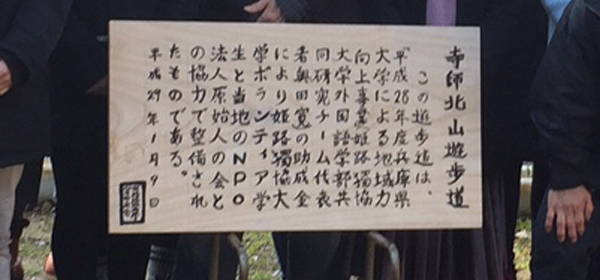 寺師北山遊歩道
この遊歩道は、
「平成28年度兵庫県
大学による地域力
向上事業」姫路獨協
大学外国語学部共
同研究チーム代表
者奥田寛の助成金
により姫路獨協大
学ボランティア学
生と当地のNPO
法人原始人の会と
の協力で整備され
たものである。
平成29年1月9日